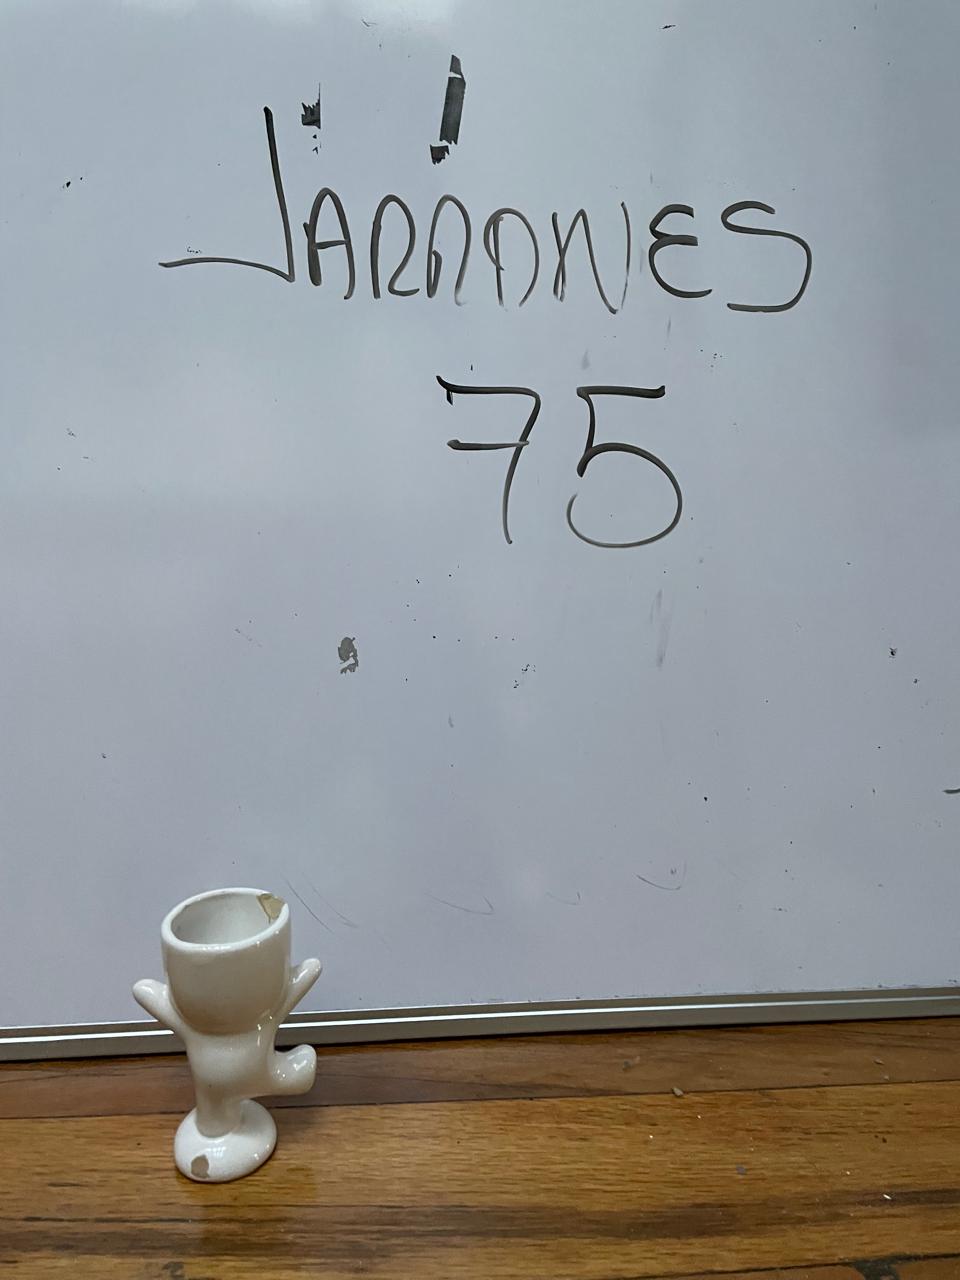 JARRONES
75